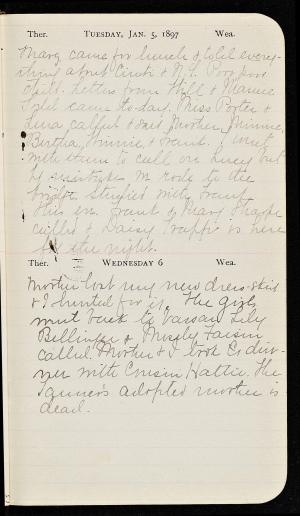 Ther. TUESDAY, JAN. 5, 1897 Wea.
Mary came for lunch & told every-
thing about & N.Y. Poor poor
Letters from Will & Mamie
came to day. Miss Porter &
Lena called & said Mother, Minnie,
Bertha, Winnie & Frank. I went
with them to call on Lucy but
by mistake rode to the
bridge. Studied with Frank
this ev. Frank & Mary Thorpe
called & Daisy is here
for the night.
Ther. WEDNESDAY 6 Wea.
Mother lost my new dress skirt
& I hunted for it. The girls
went back to Vassar. Lily
Bellinger & Mosely
called. Mother & I took din-
ner with Cousin Hattie. The
adopted mother is
dead.